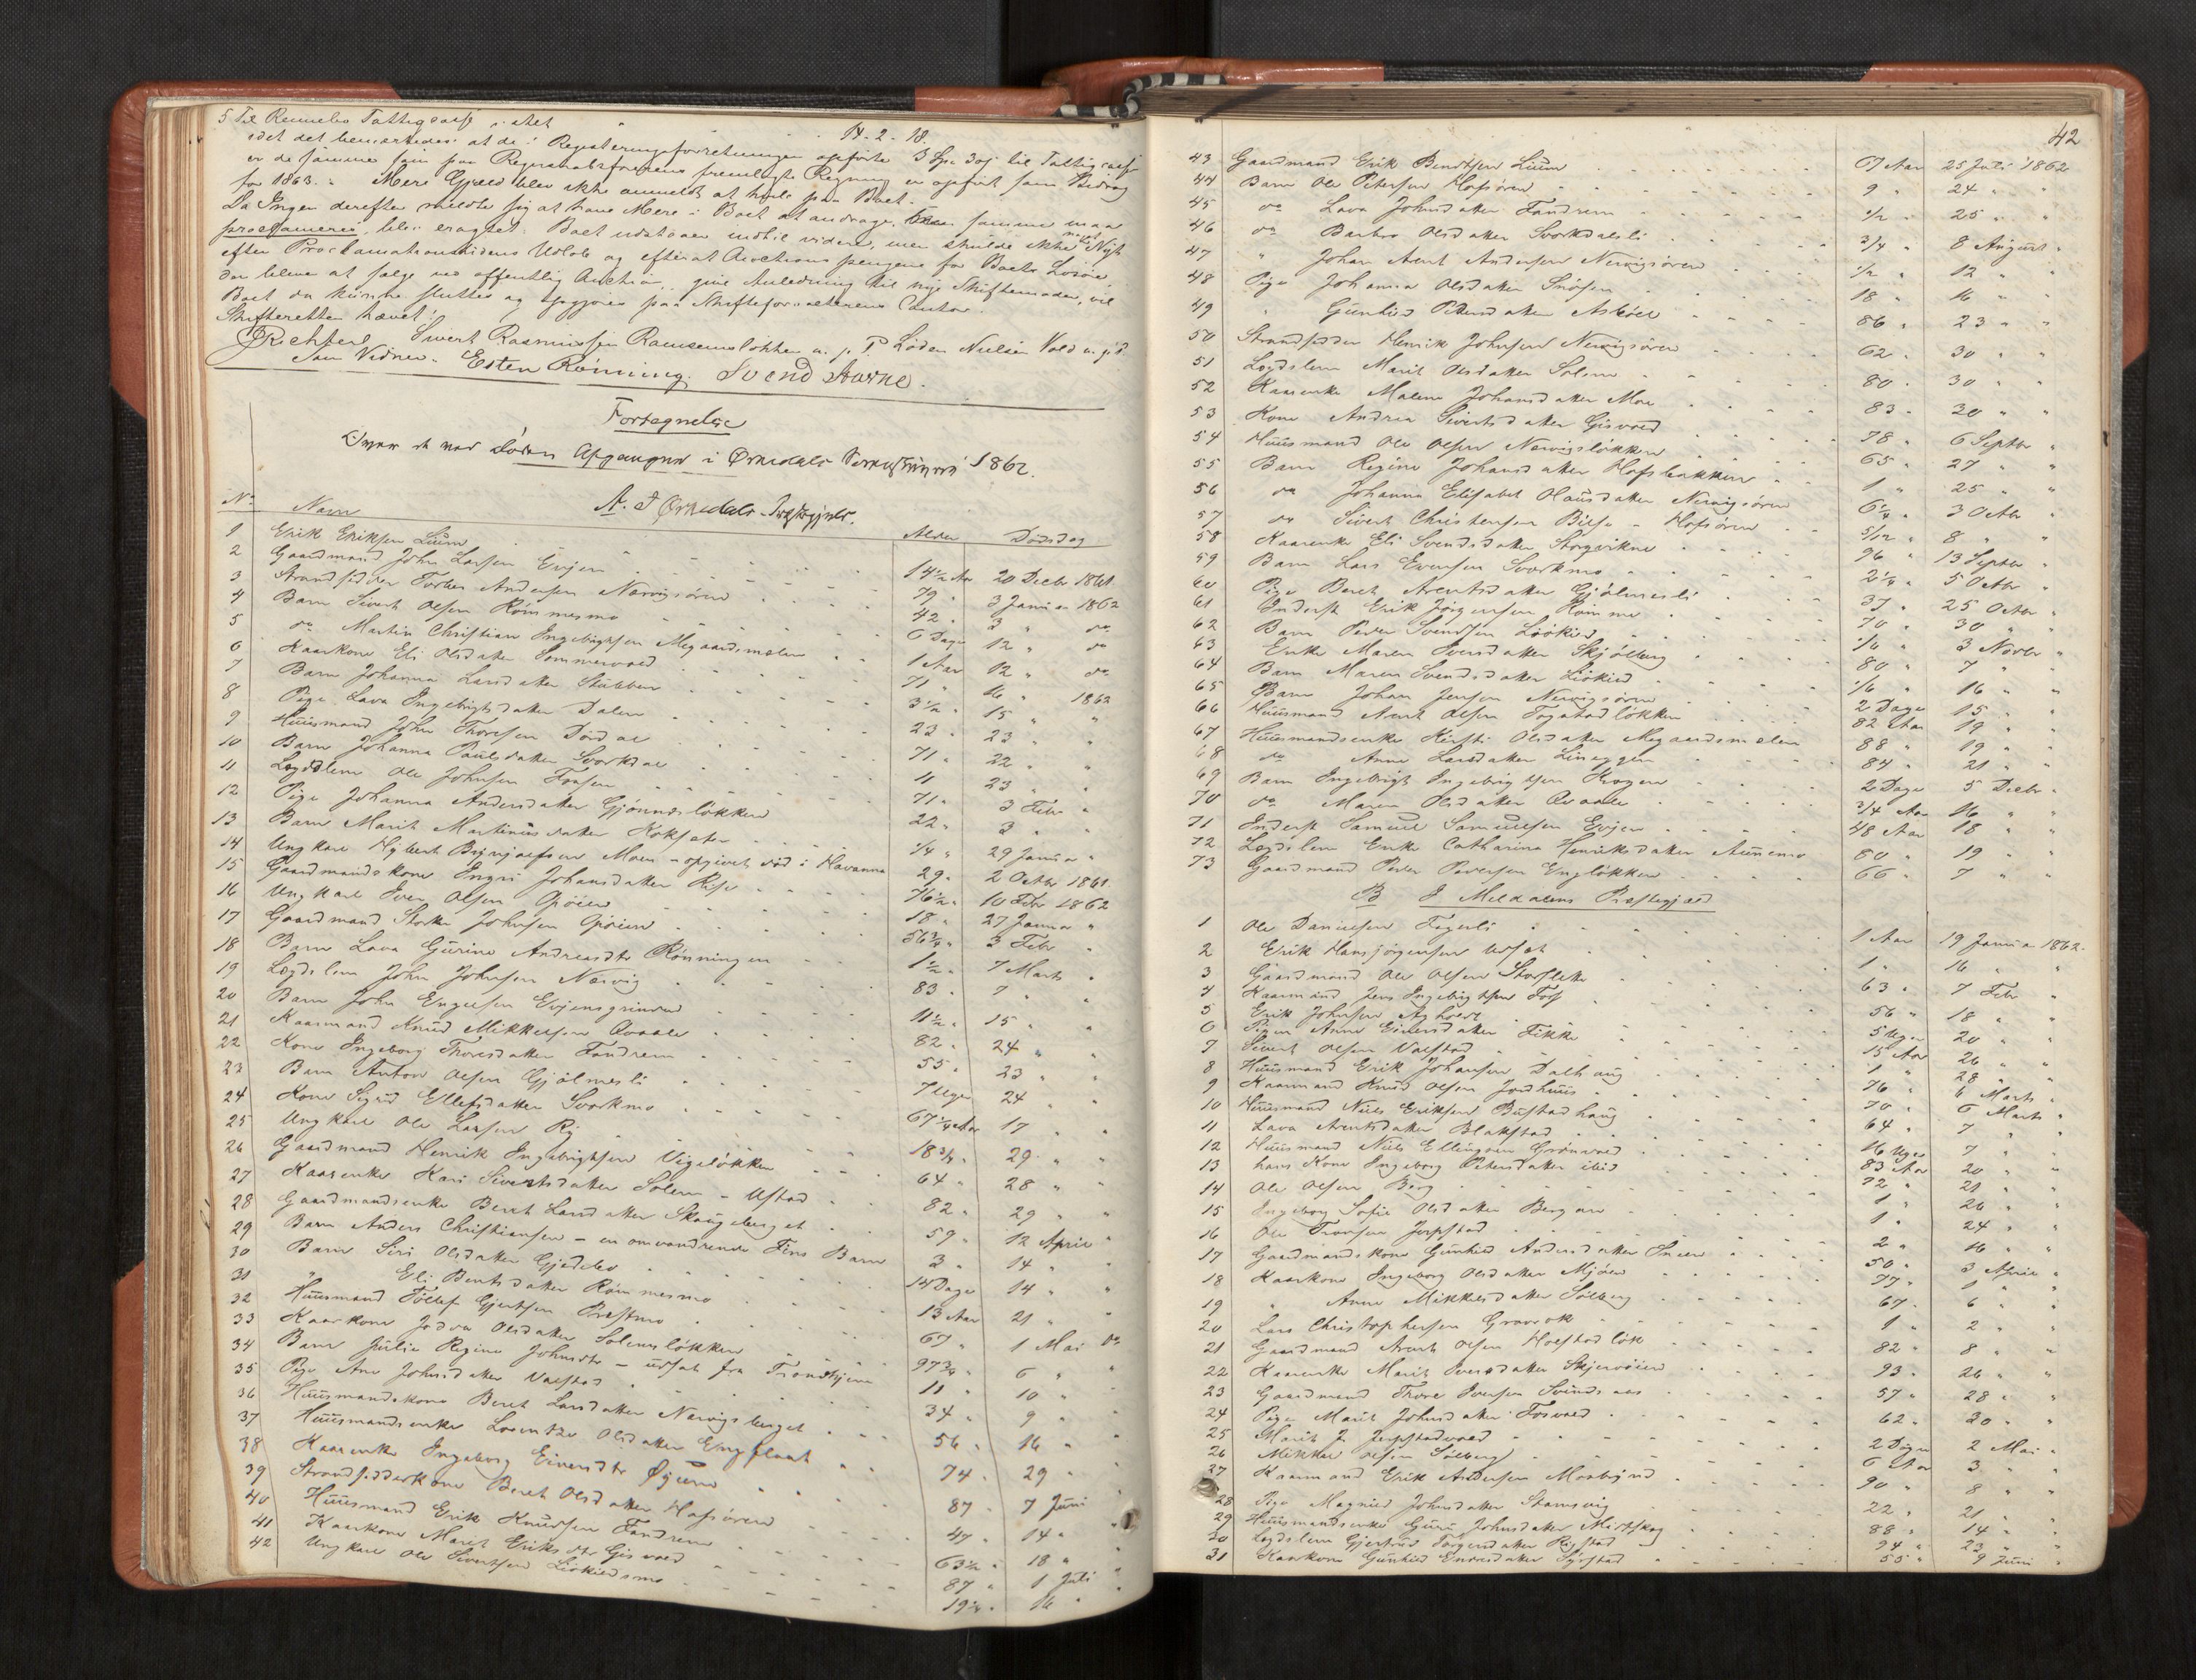 5 Til Rennebo Fattigcasse i alet 14 - 2 - 18.
idet det bemærkedes at de i Registreringsforretningen opførte 3 Spd 30 s til Fattigcasse
er de samme som paa Regnskabsførerens fremlagte Regning er opført som Bidrag
for 1863. Mere Gjæld blev ikke anmeldt at hvile paa Boet.
Da Ingen derefter meldte sig at have Mere i Boet at andrage, samme maa
proclameres, blev eragtet: Boet udstaaer indtil videre, men skulde ikke Nyt
efter Proclamationstidens Udløb og efterat Auctions pengene for Boets Løsøre,
der bliver at sælge ved offentlig Auction, give Anledning til nye Skiftemøder, vil
Boet da kunne sluttes og opgjøres paa Skifteforvalterens Contor.
Skifteretten hævet.
Richter Sivert Rasmussen Ramsemsløkken m. p. P. Løden Nielsen Vold m. p.
Som Vidner: Esten Rønning. Svend Havne.
Fortegnelse
over de ved Døden Afgangne i Ørkedals 1862.
A. I Ørkedals Præstegjæld.
No Navn Alder Dødsdag
1 Erik Eriksen Lium 14½ Aar 20 Decbr 1861
2 Gaardmand John Larsen Evjen 79 " 3 Januar 1862
3 Strandsidder Torber Andersen Nærvigsøren 42 " 3 " do
4 Barn Sivert Olsen Rømmesmo 6 Dage 12 " do
5 do Martin Christian Ingebrigtsen Megaardsmelen 1 Aar 12 " do
6 Kaarkone Eli Olsdatter Sommervold 71 " 16 " 1862
7 Barn Johanna Larsdatter Stubben 3½ " 15 " "
8 Pige Lava Ingebrigtsdatter Dalen 23 " 23 " "
9 Huusmand John Thoresen Dørdal 71 " 22 " "
10 Barn Johanna Paulsdatter Svorkdal 11 23 " "
11 Lægdslem Ole Johnsen Fossen 71 " 3 Febr "
12 Pige Johanna Andersdatter Gjønnesløkken 22 " 3 " "
13 Barn Marit Martinusdatter Kokseter ¼ " 29 Januar "
14 Ungkarl Hybert Brynjolfsen Moen - opgivet død i Havanna 29 " 2 Octbr 1861
15 Gaardmandskone Ingri Johansdatter Rise 76½ " 10 Febr 1862
16 Ungkarl Iver Olsen Gjølen 18 " 27 Januar "
17 Gaardmand Størker Johnsen Gjølen 56¾ " 3 Febr "
18 Barn Lava Gurine Andreasdtr Rønningen 1½ " 7 Marts "
19 Lægdslem John Johnsen Nervig 83 " 7 " "
20 Barn John Engelsen Evjensgrinden 11½ " 15 " "
21 Kaarmand Knud Mikkelsen Avaale 82 " 24 " "
22 Kone Ingeborg Thoresdatter Fandrem 55 " 23 " "
23 Barn Anton Olsen Gjølmesli 7 Uger 24 " "
24 Kone Sigrid Ellefsdatter Svorkmo 67¼ Aar 17 " "
25 Ungkarl Ole Larsen Ry 18¾ " 29 " "
26 Gaardmand Henrik Ingebrigtsen Vigeløkken 64 " 28 " "
27 Kaarenke Kari Sivertsdatter Solem - Ustad 82 " 29 " "
28 Gaardmandsenke Beret Larsdatter Skaugeberget 59 " 12 April "
29 Barn Anders Christiansen - en omvandrende Fins Barn 3 " 14 " "
30 Barn Siri Olsdatter Gjedebo 14 Dage 14 " "
31 " Eli Bentsdatter Rømmesmo 13 Aar 21 "
32 Huusmand Tollef Gjertsen Bræstmo 67 " 1 Mai do
33 Kaarkone Jodva Olsdatter Solemsløkken 97¾ " 6 " "
34 Barn Julie Regine Johnsdtr - udsat fra Trondhjem 11 " 10 " "
35 Pige Ane Johnsdatter Valstad 34 " 9 " "
36 Huusmandskone Beret Larsdatter Nervigsberget 56 " 16 " "
37 Huusmandsenke Lorentze Olsdatter Engplant 74 " 29 " "
38 Kaarenke Ingeborg Einersdtr Øyum 87 " 7 Juni "
39 Strandsidderkone Beret Olsdatter Hofsøren 47 " 14 " "
40 Huusmand Erik Knudsen Fandrem 63½ " 18 " "
41 Kaarkone Marit Eriksdtr Gisvold 87 " 1 Juli "
42 Ungkarl Ole Sivertsen Liøkjedsmo 19¼ " 16 "
42
43 Gaardmand Erik Bendtsen Lium 67 Aar 25 Juli 1862
44 Barn Ole Petersen Hofsøren 9 " 24 " "
45 do Lava Johnsdatter Fandrem ½ " 25 " "
46 do Barbro Olsdatter Svorkdalsli ¾ " 8 August "
47 " Johan Arnt Andersen Nervigsøren ½ " 12 " "
48 Pige Johanna Olsdatter Snøsen 18 " 16 " "
49 " Gunhild Pedersdatter Asbøll 86 " 23 " "
50 Strandsidder Henrik Johnsen Nervigsøren 62 " 30 " "
51 Lægdslem Marit Olsdatter Solem 80 " 30 " "
52 Kaarenke Malene Johansdatter Moe 83 " 30 " "
53 Kone Andrea Sivertsdatter Gisvold 78 " 6 Septbr "
54 Huusmand Ole Olsen Nervigsløkken 65 " 27 " "
55 Barn Regine Johansdatter Hofsbakken 1 " 25 " "
56 do Johanna Elisabet Olausdatter Nervigsøren 6¼ " 3 Octbr "
57 do Sivert Christensen Bilse - Hofsøren 5/12 " 8 " "
58 Kaarenke Eli Svendsdatter Storvikne 96 " 13 Septbr "
59 Barn Lars Evensen Svorkmo 2¼ " 5 Octbr "
60 Pige Beret Arentsdatter Gjølmesli 37 " 25 Octbr "
61 Inderst Erik Jørgensen Rømme 70 " 30 " "
62 Barn Peder Svendsen Liøkjed 1/6 " 3 Novbr "
63 Enke Maren Iversdatter Skjølberg 80 " 7 " "
64 Barn Maren Svendsdatter Liøkjed 1/6 " 16 " "
65 Barn Johan Jensen Nervigsøren 2 Dage 15 " "
66 Huusmand Arnt Olsen Togstadløkken 82 Aar 19 " "
67 Huusmandsenke Kirsti Olsdatter Megaardsmelen 88 " 19 " "
68 do Anne Larsdatter Lineggen 84 " 21 " "
69 Barn Ingebrigt Ingebrigtsen Krogen 2 Dage 5 Decbr "
70 do Maren Olsdatter Avaale 3/4 Aar 16 " "
71 Inderst Samuel Samuelsen Evjen 48 Aar 18 " "
72 Lægdslem Enke Catharina Henriksdatter Aunemo 80 " 19 " "
73 Gaardmand Peder Pedersen Engløkken 66 " 7 " "
B I Meldalens Præstegjæld
1 Ole Danielsen Fagerli 1 Aar 19 Januar 1862.
2 Erik Hansjørgensen Uset 1 " 16 " "
3 Gaardmand Ole Olsen Storslette 63 " 7 Febr "
4 Kaarmand Jens Ingebrigtsen Fos 56 " 18 " "
5 Erik Johnsen Aspholt 5 Uger 20 " "
6 Pigen Anne Einersdatter Fikke 15 Aar 26 " "
7 Sivert Olsen Valstad 1 " 28 " "
8 Huusmand Erik Johansen Dalhaug 76 " 4 Marts "
9 Kaarmand Knud Olsen Jordhuus 70 " 6 Marts "
10 Huusmand Niels Eriksen Bustadhaug 64 " 7 " "
11 Lava Arentsdatter Blokstad 16 Uger 7 " "
12 Huusmand Niels Ellingsen Grønvold 83 Aar 20 " "
13 hans Kone Ingeborg Pedersdatter ibid 72 " 21 " "
14 Ole Olsen Berg 1 " 26 " "
15 Ingeborg Sofie Olsdatter Bergan 1 " 24 " "
16 Ole Troensen Jerpstad 2 " 16 " "
17 Gaardmandskone Gunhild Andersdatter Indlien 50 " 3 April "
18 Kaarkone Ingeborg Olsdatter Mjøen 77 " 1 " "
19 " Anne Mikkelsdatter Solberg 67 " 6 " "
20 Lars Christophersen Gravrok 1 " 2 " "
21 Gaardmand Arent Olsen Holstadløk 82 " 8 " "
22 Kaarenke Marit Iversdatter Skjerveøien 93 " 26 " "
23 Gaardmand Thore Iversen Svindsaas 57 " 28 " "
24 Pige Marit Johnsdatter Fosvold 62 " 30 " "
25 Marit J. Jerpstadvold 2 Dage 2 Mai "
26 Mikkel Olsen Solberg 6 Aar 3 " "
27 Kaarmand Erik Andersen Mosbrynd 90 " 8 " "
28 Pige Magnild Johnsdatter Stamsvig 22 " 21 " "
29 Huusmandsenke Guru Johnsdatter Midtskog 88 " 14 " "
30 Lægdslem Gjertrud Torgersdatter Rigstad 94 " 23 " "
31 Kaarkone Gunhild Endresdatter Syrstad 55 " 9 Juni "